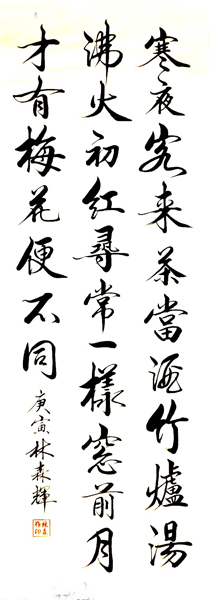 寒夜客來茶當酒竹爐湯
沸火初紅尋常一樣窓前月
才有梅花便不同
庚寅林森輝